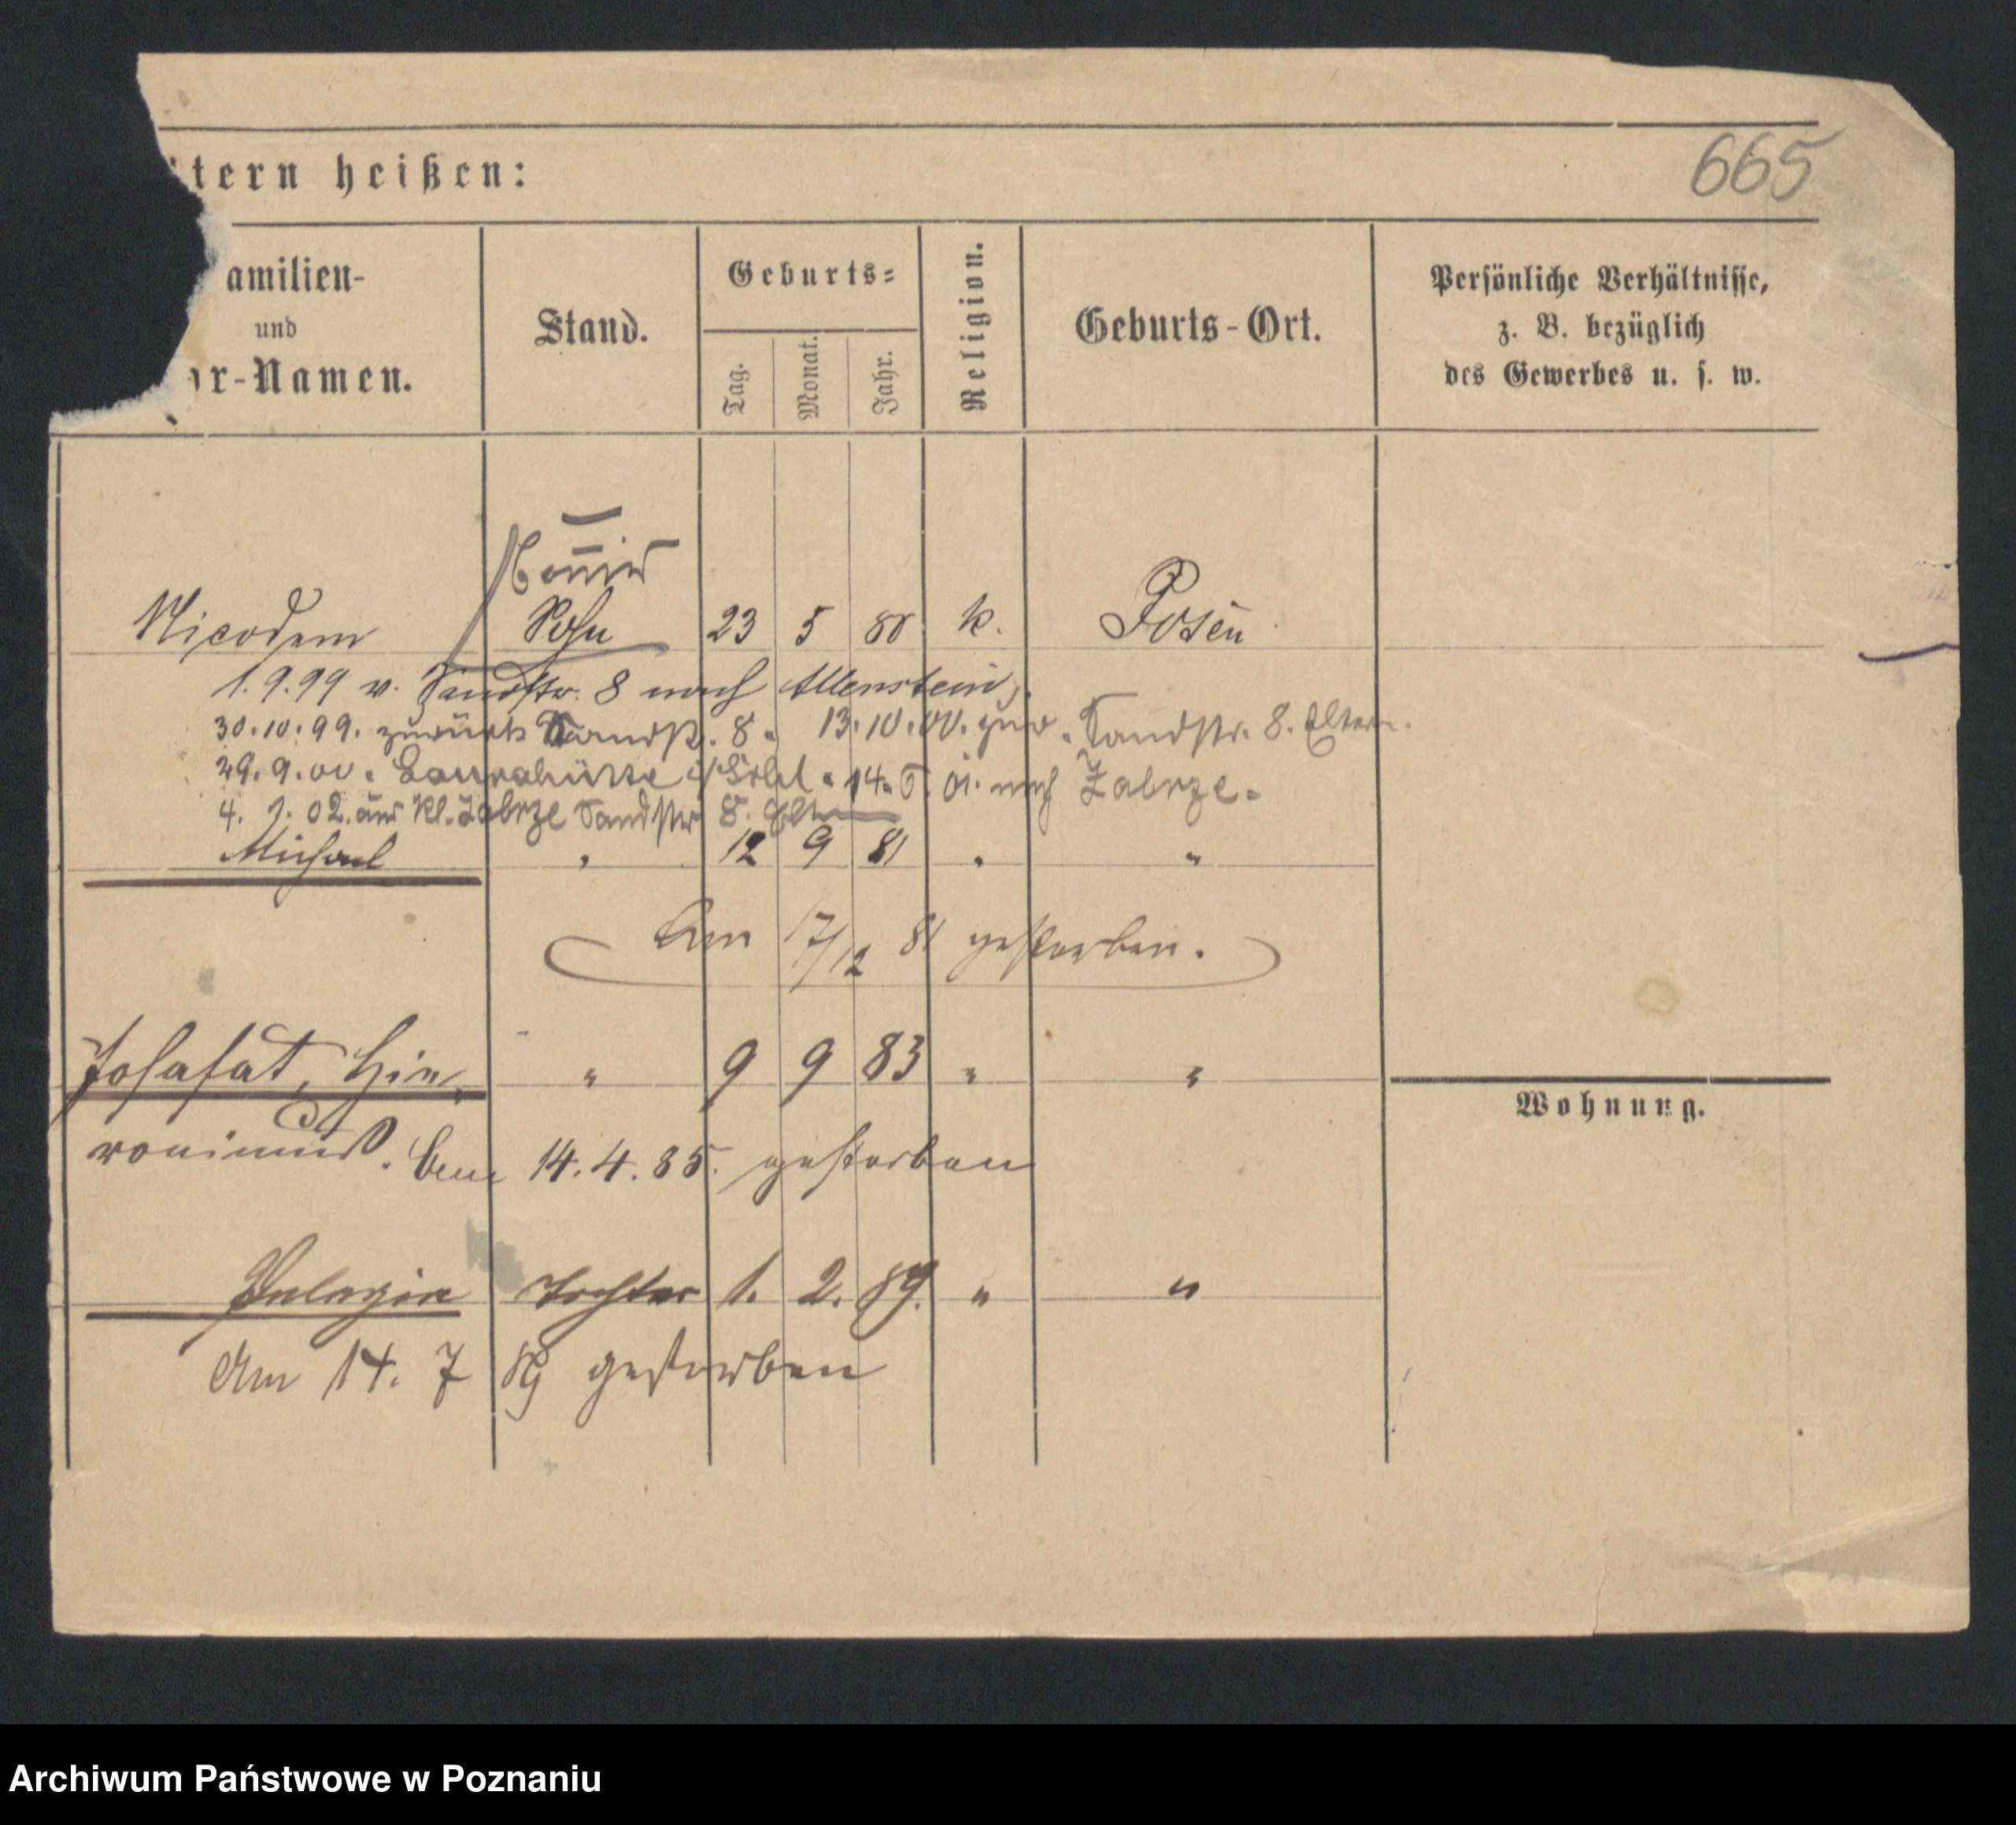 665
tern heißen:
amilien-
und
or-Namen.
Stand.
Geburts-
Tag.
Monat.
Jahr.
Religion.
Geburts-Ort.
Persönliche Verhältnisse,
z. B. bezüglich
des Gewerbes u. s. w.
Nicodem Sohn 23 5 80 k. Posen
1.9.99 v. Sandstr. 8 nach Allenstein
30.10.99. zurück Sandstr. 8. 13.10.00. zur. Sandstr. 8. Eltern.
29.9.00. Laurahütte 14. 5. 01. nach Zabrze.
4. 1. 02. aus Kl. Zabrze Sandstr 8. Eltern
Michael " 12 9 81 " "
Am 17/12 81 gestorben.
Josafat, Hie- " 9 9 83 " "
ronimus. Am 14.4.85. gestorben
Wohnung.
Pelagia Tochter 1. 2. 89. " "
Am 14. 7 89 gestorben
Archiwum Państwowe w Poznaniu